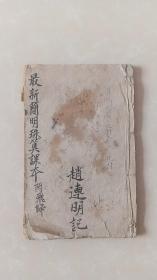 最新簡明珠算課本附飛歸
趙連明記